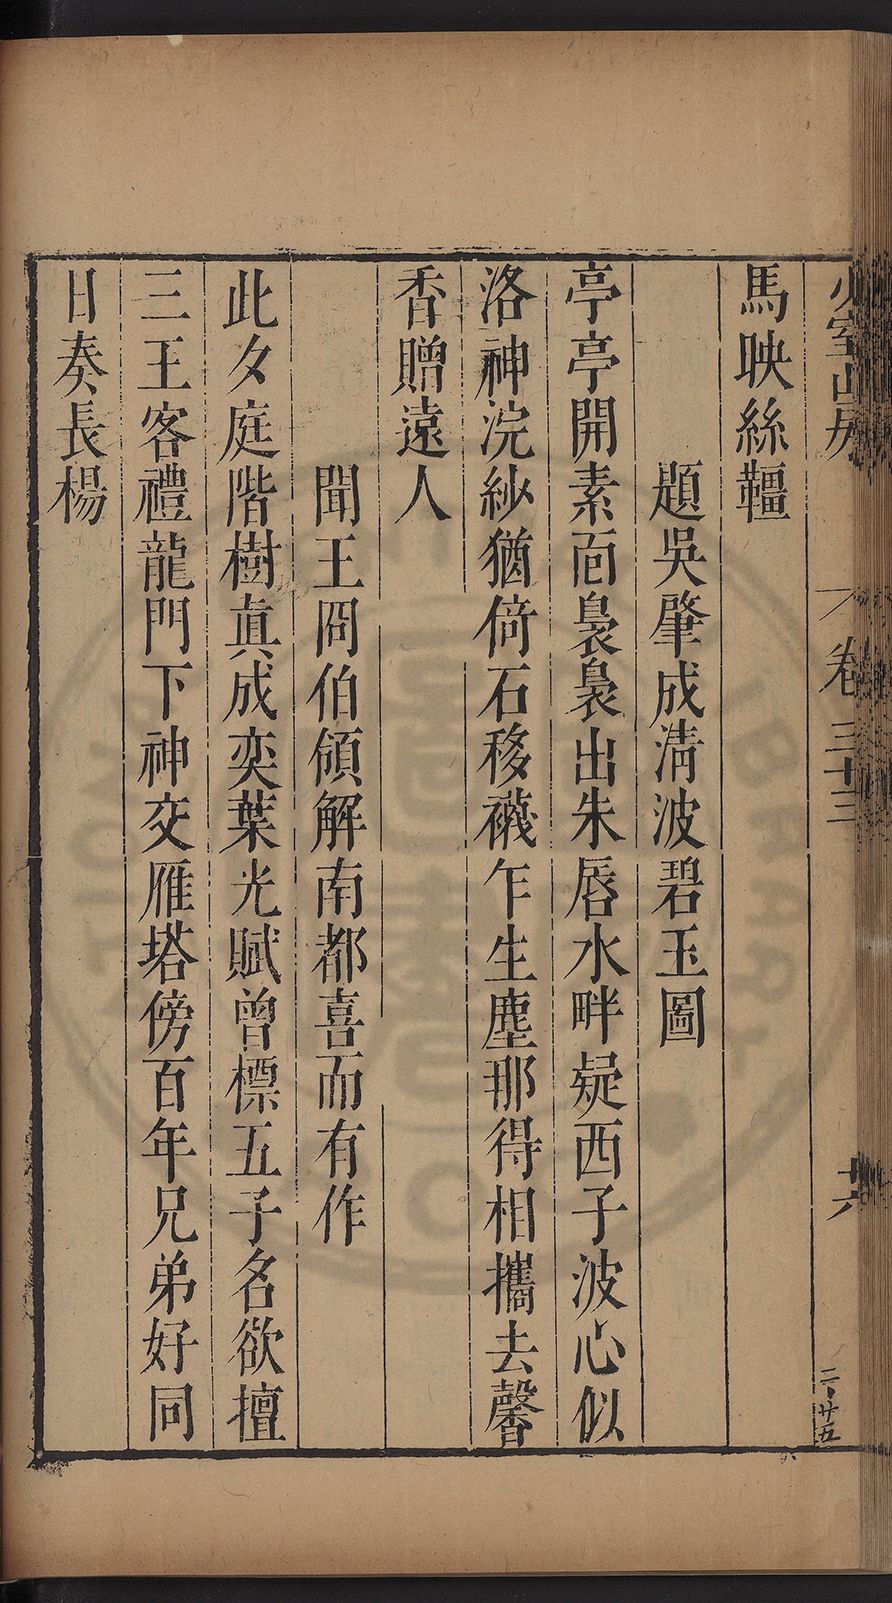 少室山房
卷三十三
廿六
二廿五
馬映絲韁
題吳肇成清波碧玉圖
亭亭開素靣裊裊出朱唇水畔疑西子波心似
洛神浣紗猶倚石移襪乍生塵那得相攜去馨
香贈遠人
聞王冏伯領解南都喜而有作
此夕庭階樹真成奕葉光賦曾標五子名欲擅
三王客禮龍門下神交雁塔傍百年兄弟好同
日奏長楊